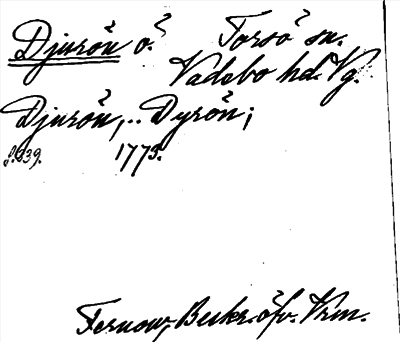 Djurön ö. Torsö sn.
Vadsbo hd. Vg.
Djurön,.. Dyrön;
s. 339. 1773.
Fernow, Beskr. öfv. Vrm.